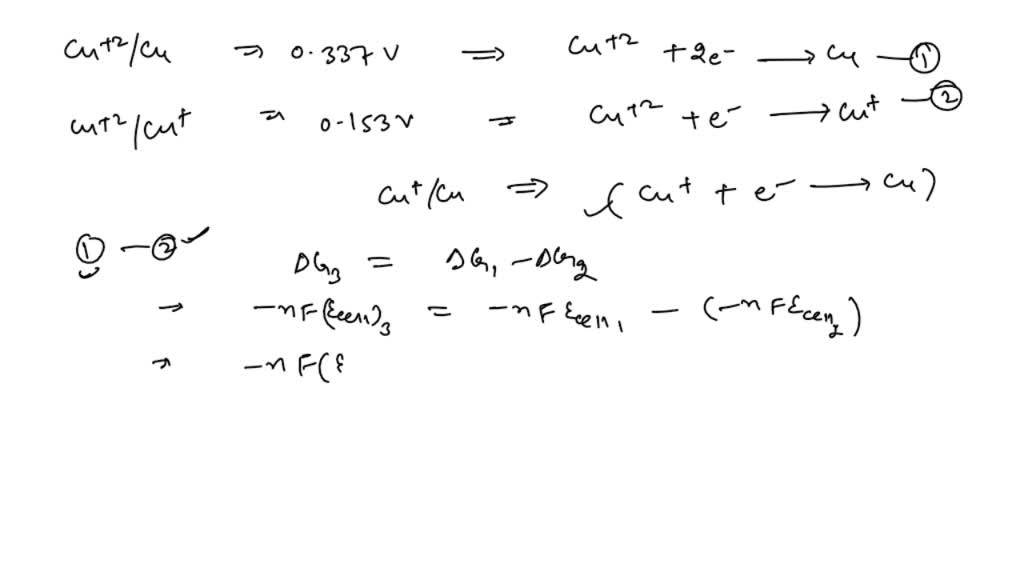 Cu+2/Cu ⇒ 0.337 V ⇒ Cu+2 + 2e- → Cu — ①
Cu+2/Cu+ = 0.153 V = Cu+2 + e- → Cu+ — ②
Cu+/Cu ⇒ (Cu+ + e- → Cu)
① - ② ✓
ΔG3 = ΔG1 - ΔG2
→ -nF(Ecell)3 = -nFEcell1 - (-nFEcell2)
→ -nF(E